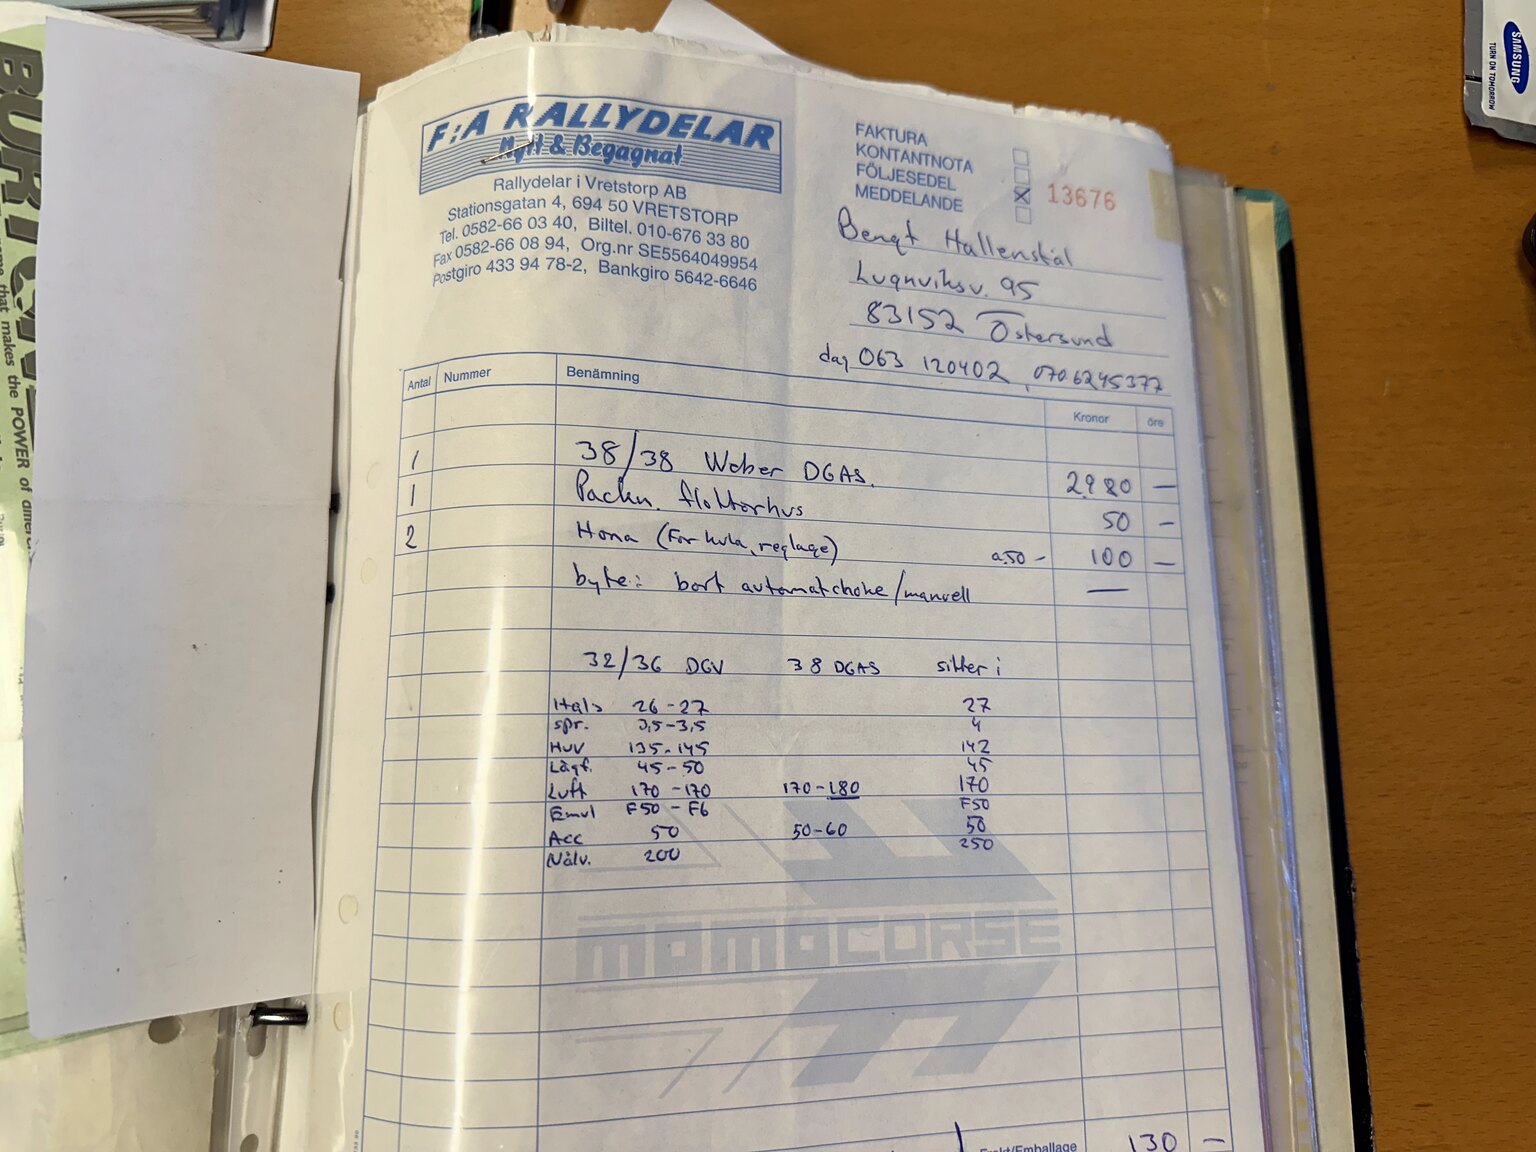 F:A RALLYDELAR
Nytt & Begagnat
Rallydelar i Vretstorp AB
Stationsgatan 4, 694 50 VRETSTORP
Tel. 0582-66 03 40, Biltel. 010-676 33 80
Fax 0582-66 08 94, Org.nr SE5564049954
Postgiro 433 94 78-2, Bankgiro 5642-6646
FAKTURA
KONTANTNOTA
FÖLJESEDEL
MEDDELANDE
13676
Bengt Hallenstål
Lugnviksv. 95
83152 Östersund
dag 063 120402, 0706245377
Antal Nummer Benämning Kronor öre
1 38/38 Weber DGAS. 2980 —
1 Packn. flottorhus 50 —
2 Hona (för kula, reglage) a.50- 100 —
byte: bort automatchoke/manuell —
32/36 DGV 38 DGAS sitter i
Hals 26-27 27
spr. 3,5-3,5 4
Huv 135-145 142
Lågf. 45-50 45
Luft 170-170 170-180 170
Emul F50 - F6 F50
Acc 50 50-60 50
Nålv. 200 250
MOMOCORSE
Frakt/Emballage 130 —
SAMSUNG
TURN ON TOMORROW
BURTON
that makes the POWER of